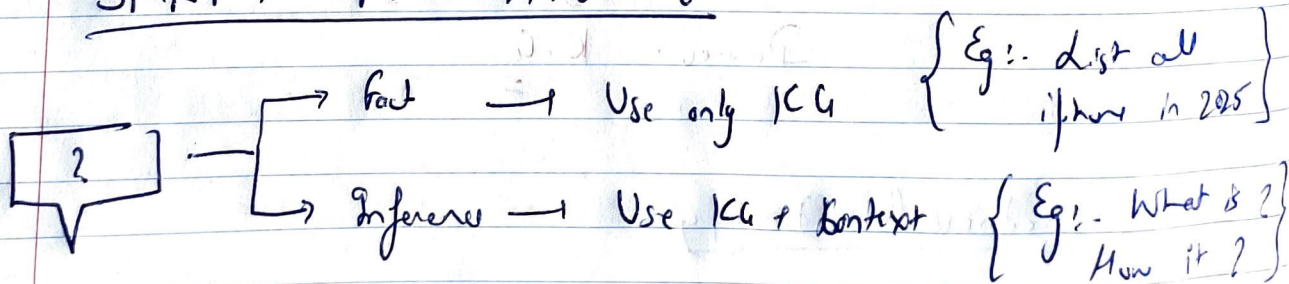 Fact → Use only KG { Eg:- List all
iphone in 2025 }
?
Inference → Use KG + Context { Eg:- What is ?
How it ? }